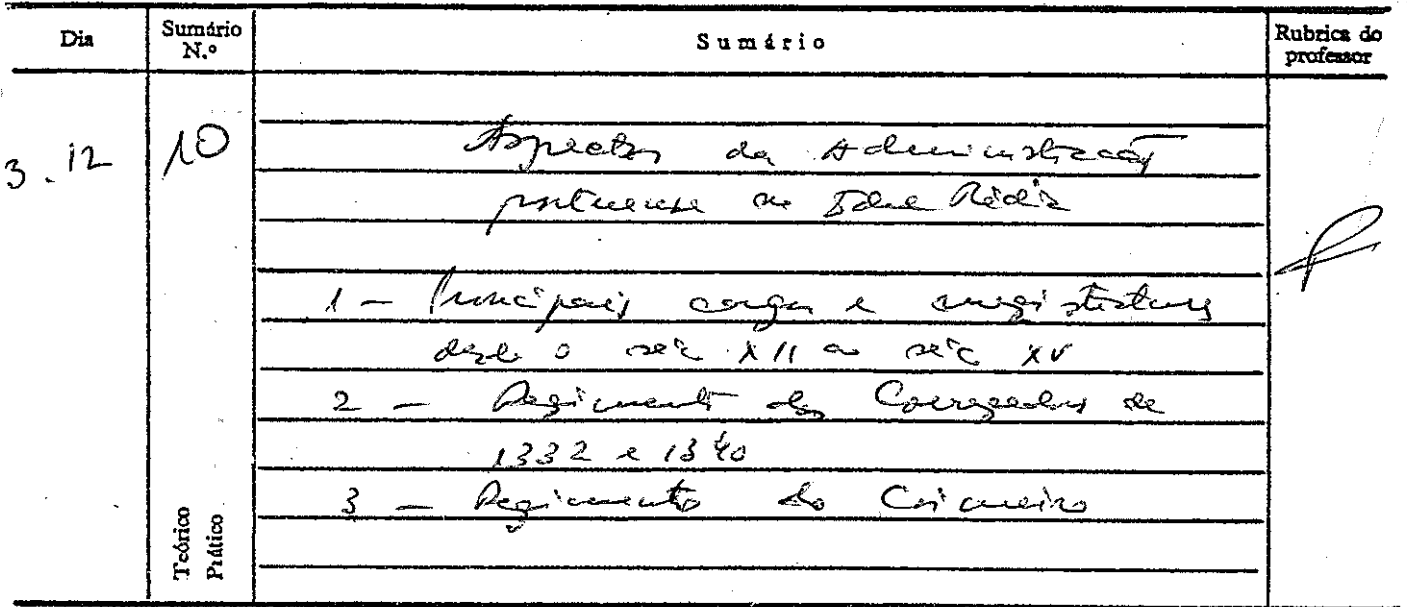 Dia
Sumário N.º
Sumário
Rubrica do professor
3.12
10
Aspectos da Administração
portuense na Idade Média
1 - Principais cargos e magistraturas
desde o séc XII ao séc XV
2 - Regimento dos Corregedores de
1332 e 1340
3 - Regimento do Coimeiro
Teórico
Prático